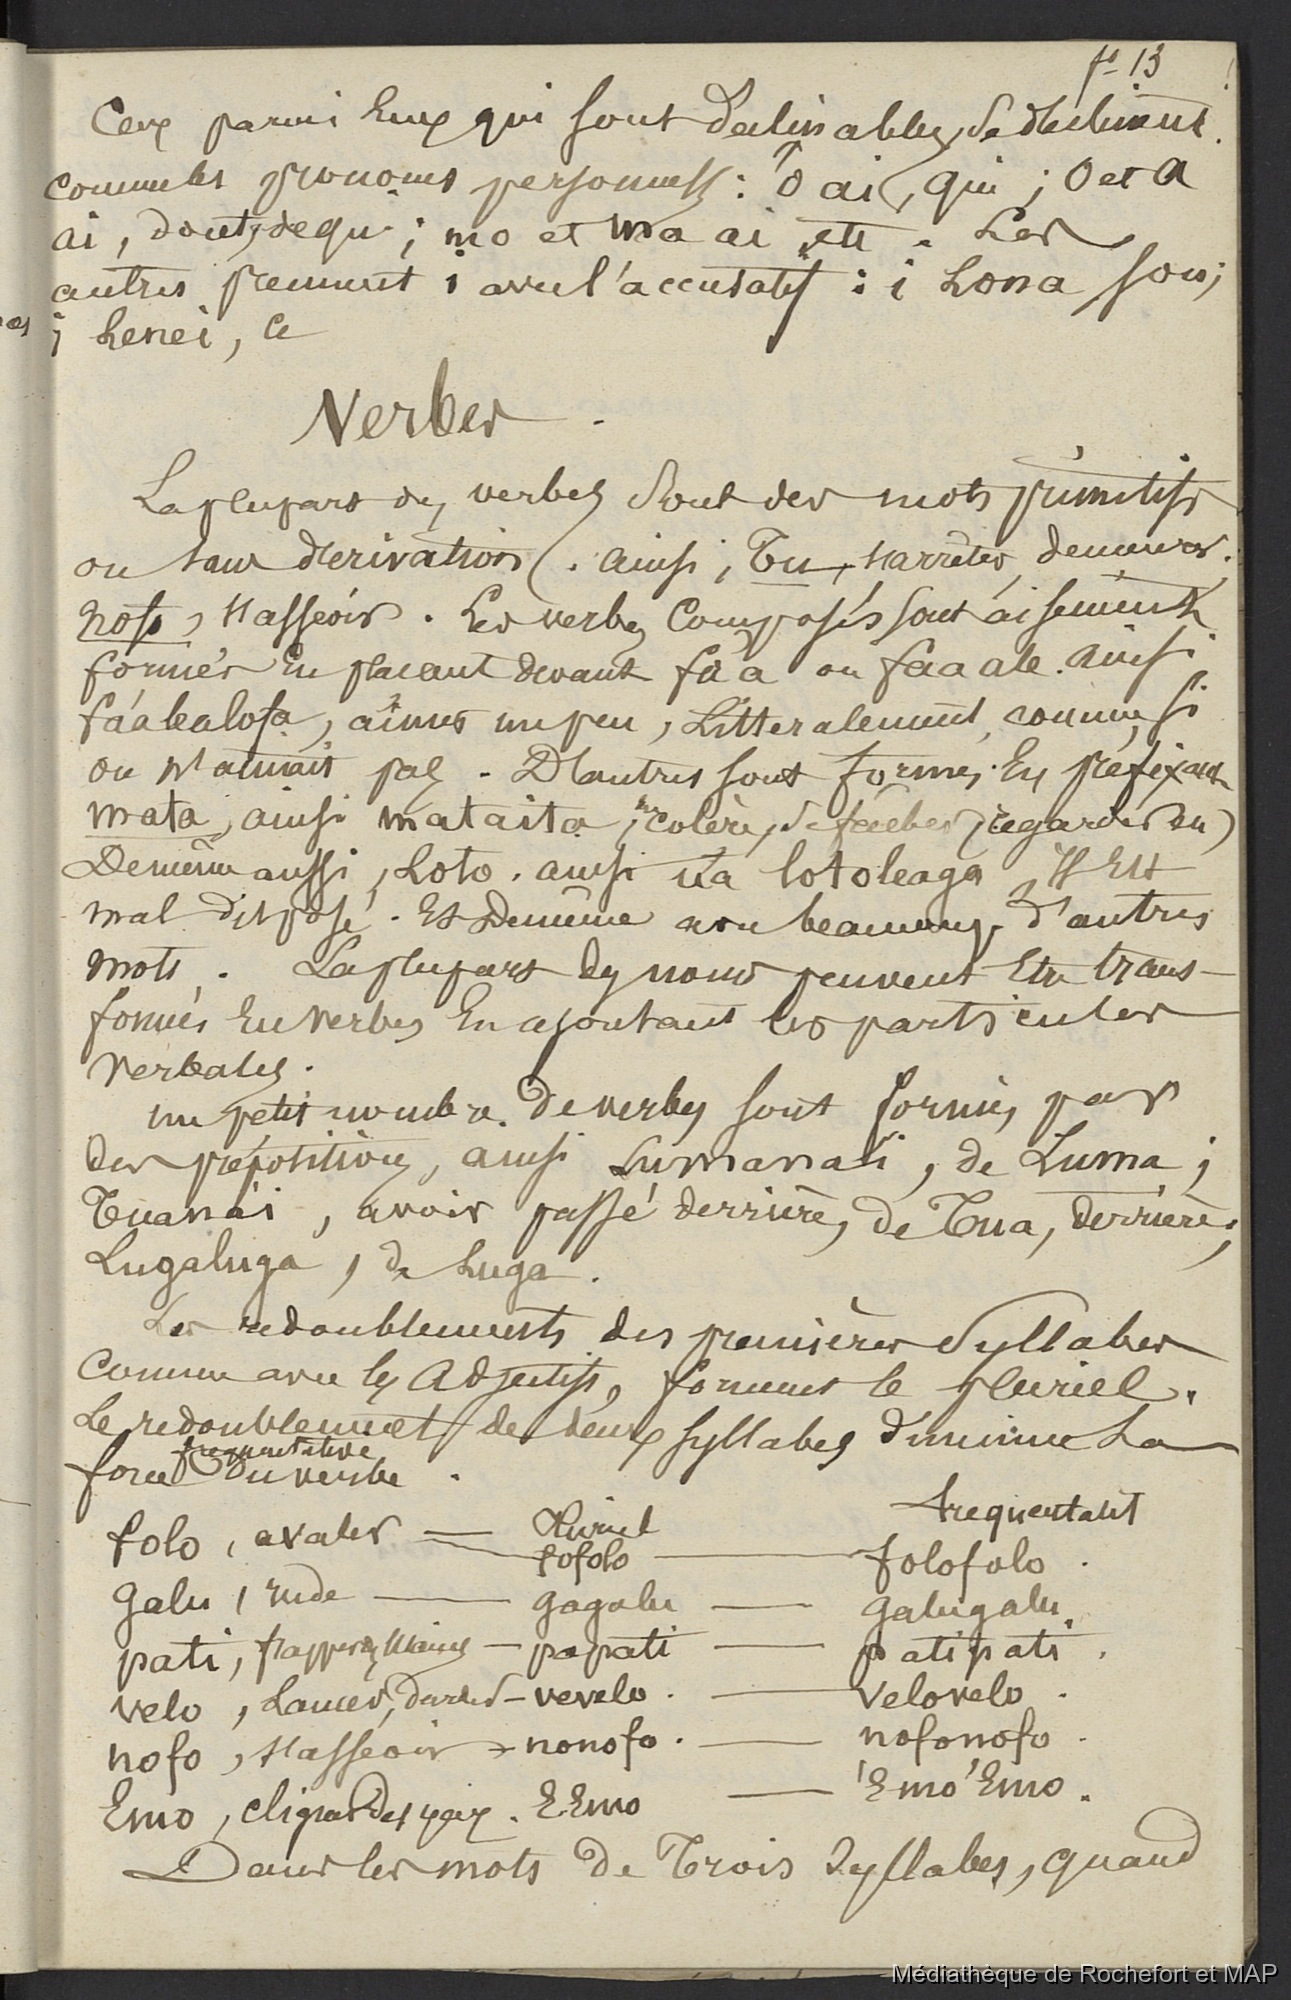 fo 13
Ceux parmi eux qui sont déclinables, se déclinent
comme les pronoms personnels : O ai, qui ; O et A
ai, dont, de qui ; mo et ma ai etc. Les
autres prennent i avec l'accusatif : i Lona son ;
i Lenei, ce
Verbes.
La plupart des verbes sont des mots primitifs
ou sans dérivation. Ainsi, Tu, s'arrêter, demeurer.
nofo, s'asseoir. Les verbes Composés sont aisément
formés en placant devant fa'a ou faaale. Ainsi
fáaalalofa, aimer un peu, Litteralement, comme si
on n'aimait pas. D'autres sont formés en préfixant
mata, ainsi mataita, colère, se fâcher (regarder en)
De même aussi, Loto. ainsi ua lotoleaga, Il est
mal disposé. Et de même avec beaucoup d'autres
mots. La plupart des noms peuvent être trans-
formés en verbes en ajoutant les particules
verbales.
un petit nombre de verbes sont formés par
des prépositions, ainsi Lumanai, de Luma ;
Tuanái, avoir passé derrière, de Tua, derrière ;
Lugaluga, de Luga.
Les redoublements des premières Syllabes
Comme avec les Adjectifs, forment le pluriel.
Le redoublement de deux syllabes diminue La
frequentative
force du verbe.
Pluriel Frequentatif
folo, avaler — fofolo — folofolo.
galu, rude — gagalu — galugalu.
pati, frapper des mains — papati — patipati.
velo, Lancer, darder — vevelo. — velovelo.
nofo, s'asseoir — nonofo. — nofonofo.
Emo, cligner des yeux. EEmo — 'Emo'Emo.
Dans les mots de Trois Syllabes, quand
Médiathèque de Rochefort et MAP